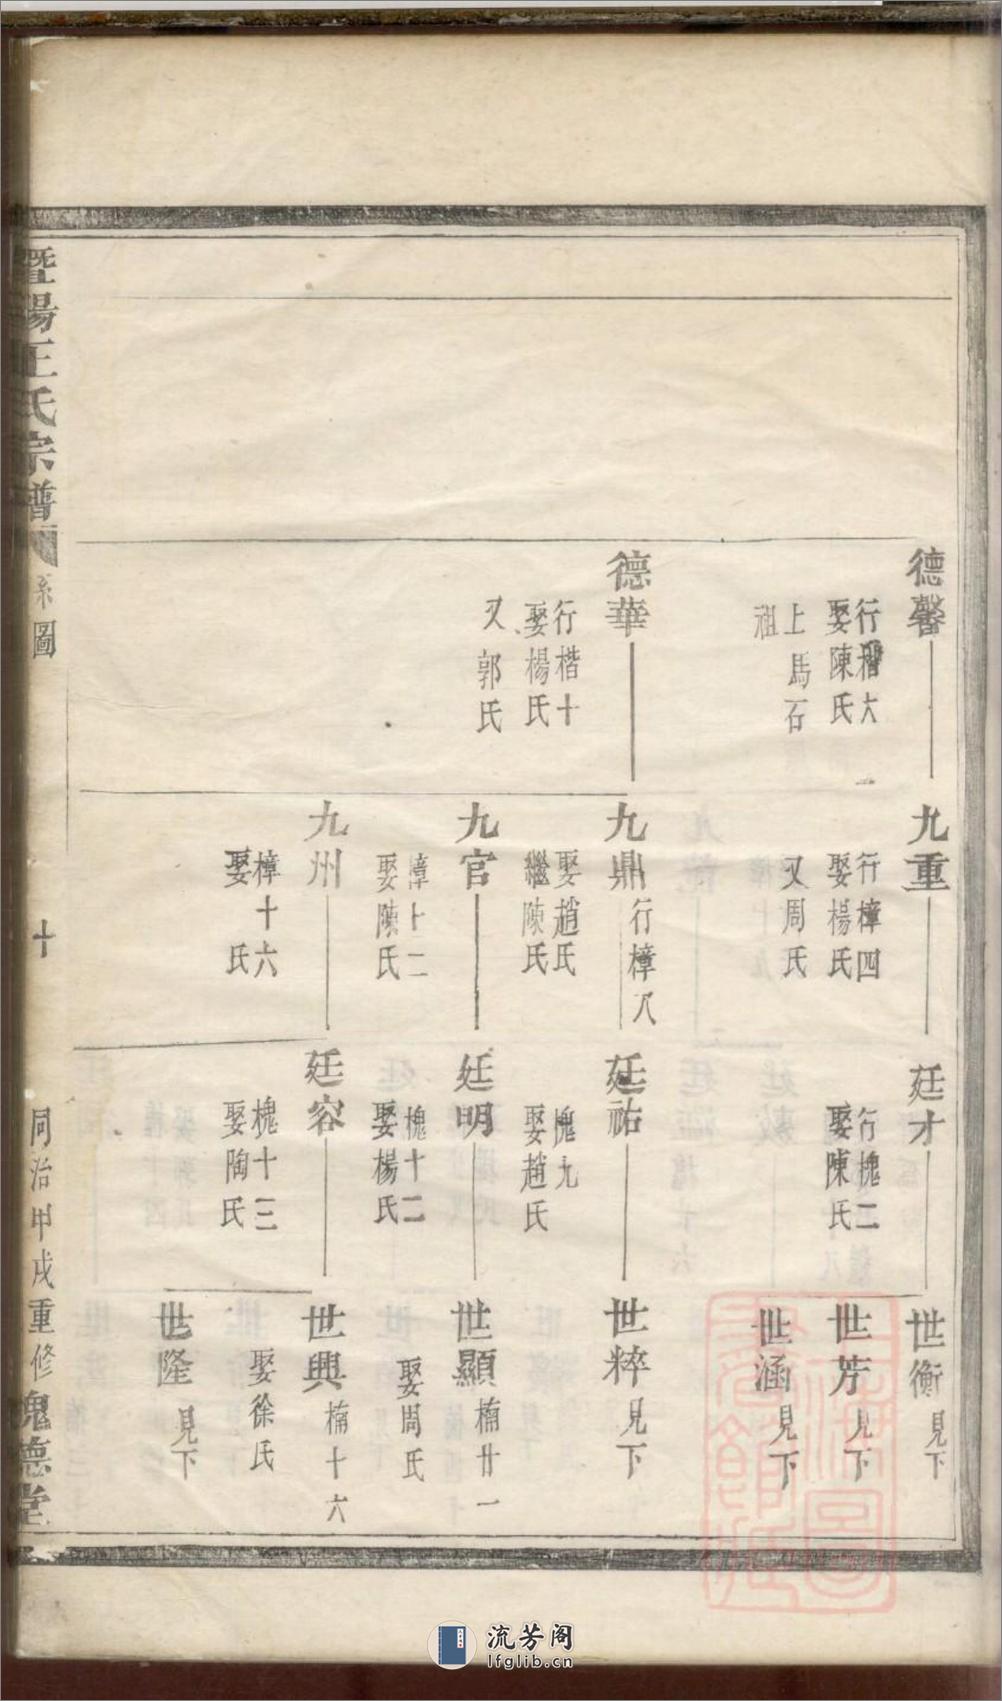 德馨
行楷六
娶陳氏
上馬石
祖
德華
行楷十
娶楊氏
又郭氏
九重
行樟四
娶楊氏
又周氏
九鼎
行樟八
娶趙氏
繼陳氏
九官
樟十二
娶陳氏
九州
樟十六
娶 氏
廷才
行槐二
娶陳氏
廷祐
槐九
娶趙氏
廷明
槐十二
娶楊氏
廷容
槐十三
娶陶氏
世衡 見下
世芳 見下
世涵 見下
世粹 見下
世顯 楠廿一
娶周氏
世興 楠十六
娶徐氏
世隆 見下
暨陽王氏宗譜
系圖
十
同治甲戌重修
槐德堂
流芳阁
lfglib.cn